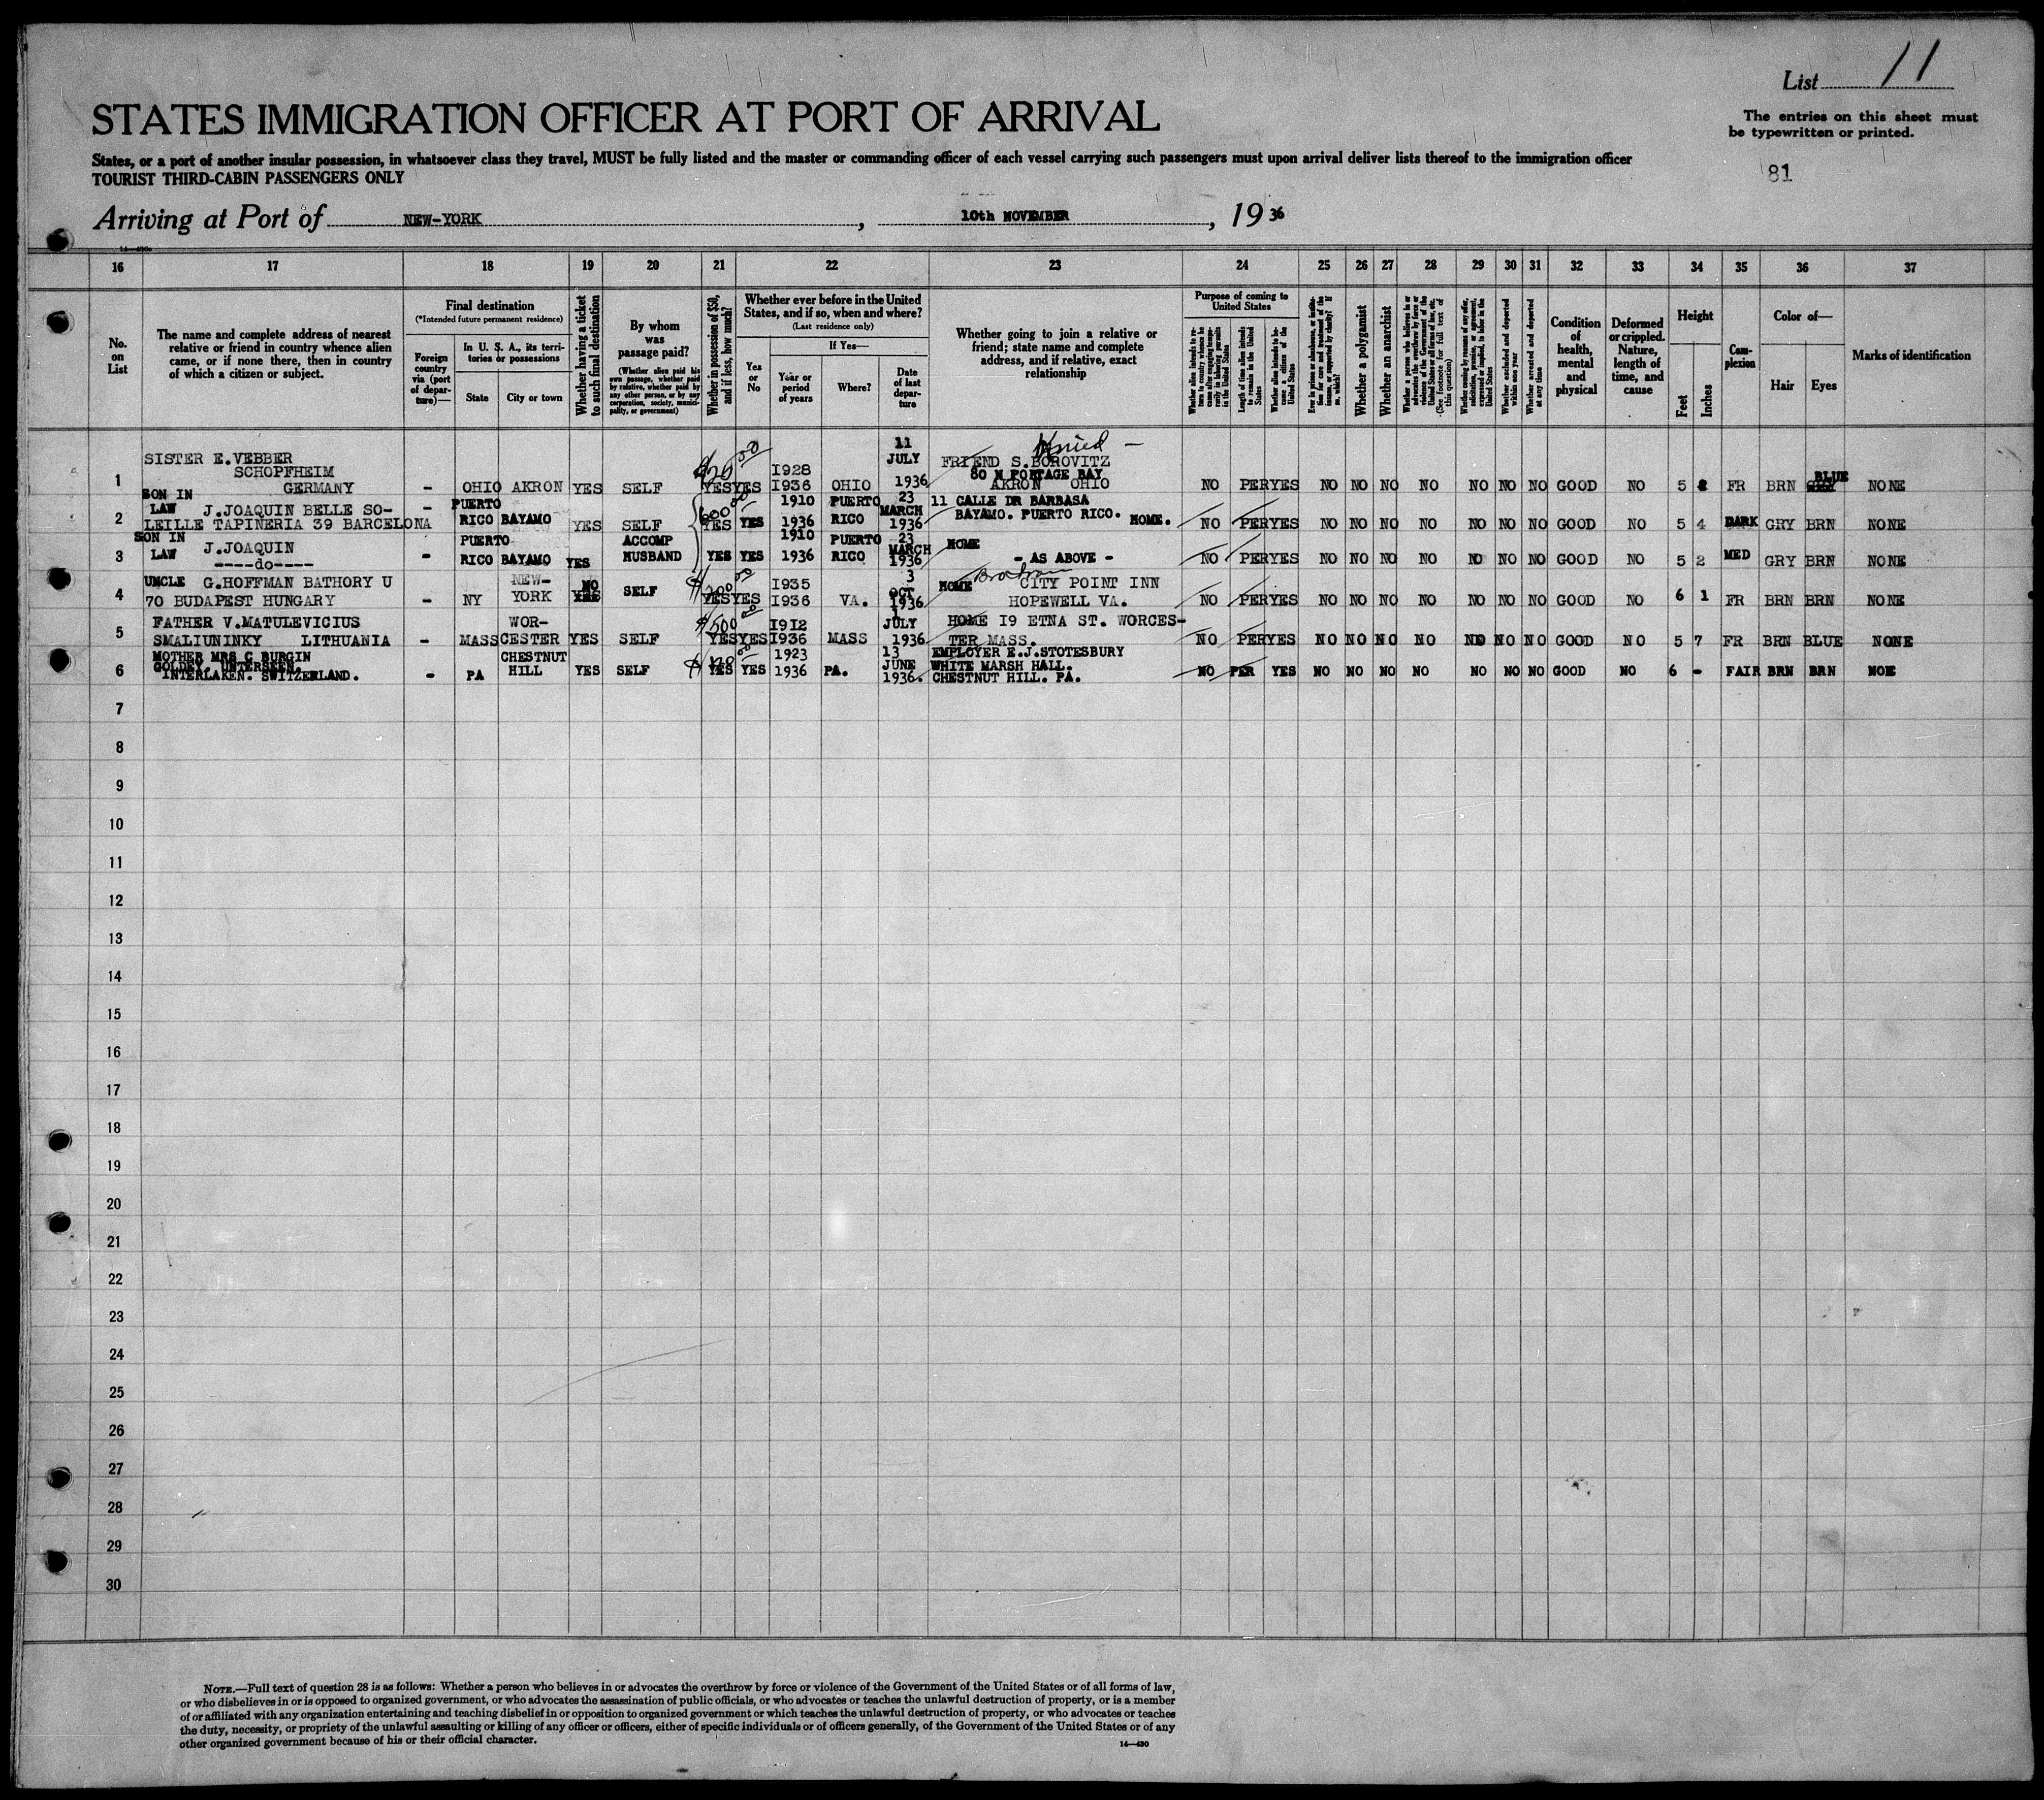 List 11
STATES IMMIGRATION OFFICER AT PORT OF ARRIVAL
The entries on this sheet must
be typewritten or printed.
States, or a port of another insular possession, in whatsoever class they travel, MUST be fully listed and the master or commanding officer of each vessel carrying such passengers must upon arrival deliver lists thereof to the immigration officer
TOURIST THIRD-CABIN PASSENGERS ONLY
81
Arriving at Port of NEW-YORK, 10th NOVEMBER, 1936
16 17 18 19 20 21 22 23 24 25 26 27 28 29 30 31 32 33 34 35 36 37
No. on List
The name and complete address of nearest
relative or friend in country whence alien
came, or if none there, then in country
of which a citizen or subject.
Final destination
(*Intended future permanent residence)
Foreign country via (port of departure)—
In U. S. A., its territories or possessions
State
City or town
Whether having a ticket to such final destination
By whom was passage paid?
(Whether alien paid his own passage, whether paid by relative, whether paid by any other person, or by any corporation, society, municipality, or government)
Whether in possession of $50, and if less, how much?
Whether ever before in the United
States, and if so, when and where?
(Last residence only)
Yes or No
If Yes—
Year or period of years
Where?
Date of last departure
Whether going to join a relative or
friend; state name and complete
address, and if relative, exact
relationship
Purpose of coming to United States
Length of time alien intends to remain in the United States
Whether alien intends to become a citizen of the United States
Whether a polygamist
Whether an anarchist
(See footnote for full text of this question)
Whether excluded and deported within one year
Whether arrested and deported at any time
Condition of health, mental and physical
Deformed or crippled. Nature, length of time, and cause
Height
Feet
Inches
Complexion
Color of—
Hair
Eyes
Marks of identification
1 SISTER E.VEBBER SCHOPFHEIM GERMANY - OHIO AKRON YES SELF YES YES I928 I936 OHIO 11 JULY 1936 FRIEND S.BOROVITZ 80 N PORTAGE BAY AKRON OHIO NO PER YES NO NO NO NO NO NO NO GOOD NO 5 FR BRN BLUE NONE
2 SON IN LAW J.JOAQUIN BELLE SO-LEILLE TAPINERIA 39 BARCELONA - PUERTO RICO BAYAMO YES SELF YES YES 1910 1936 PUERTO RICO 23 MARCH 1936 11 CALLE DR BARBASA BAYAMO. PUERTO RICO. HOME. NO PER YES NO NO NO NO NO NO NO GOOD NO 5 4 DARK GRY BRN NONE
3 SON IN LAW J.JOAQUIN ----do---- - PUERTO RICO BAYAMO YES ACCOMP HUSBAND YES YES 1910 1936 PUERTO RICO 23 MARCH 1936 HOME - AS ABOVE - NO PER YES NO NO NO NO NO NO NO GOOD NO 5 2 MED GRY BRN NONE
4 UNCLE G.HOFFMAN BATHORY U 70 BUDAPEST HUNGARY - NY NEW-YORK NO YES SELF YES YES I935 I936 VA. 3 OCT 1936 HOME CITY POINT INN HOPEWELL VA. NO PER YES NO NO NO NO NO NO NO GOOD NO 6 1 FR BRN BRN NONE
5 FATHER V.MATULEVICIUS SMALIUNINKY LITHUANIA - MASS WOR-CESTER YES SELF $500 00 YES YES I9I2 I936 MASS 1 JULY 1936 HOME I9 ETNA ST. WORCES-TER MASS. NO PER YES NO NO NO NO NO NO NO GOOD NO 5 7 FR BRN BLUE NONE
6 MOTHER MRS C BURGIN GOLDEY. UNTERSEEN. INTERLAKEN. SWITZERLAND. - PA CHESTNUT HILL YES SELF YES YES 1923 1936 PA. 13 JUNE 1936. EMPLOYER E.J.STOTESBURY WHITE MARSH HALL. CHESTNUT HILL. PA. NO PER YES NO NO NO NO NO NO NO GOOD NO 6 - FAIR BRN BRN NOE
7
8
9
10
11
12
13
14
15
16
17
18
19
20
21
22
23
24
25
26
27
28
29
30
NOTE.—Full text of question 28 is as follows: Whether a person who believes in or advocates the overthrow by force or violence of the Government of the United States or of all forms of law,
or who disbelieves in or is opposed to organized government, or who advocates the assassination of public officials, or who advocates or teaches the unlawful destruction of property, or is a member
of or affiliated with any organization entertaining and teaching disbelief in or opposition to organized government or which teaches the unlawful destruction of property, or who advocates or teaches
the duty, necessity, or propriety of the unlawful assaulting or killing of any officer or officers, either of specific individuals or of officers generally, of the Government of the United States or of any
other organized government because of his or their official character.
14—430